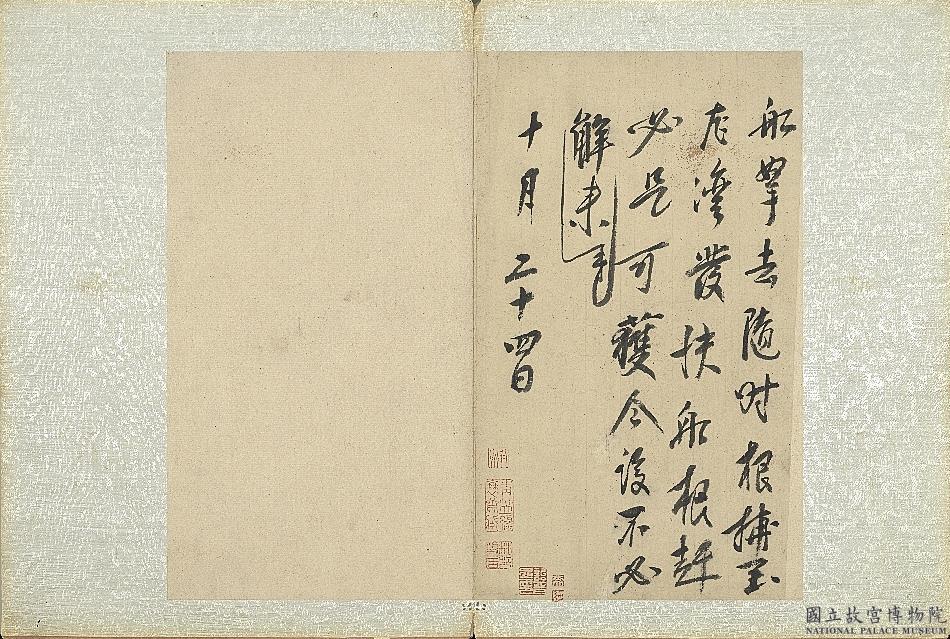 船拏去隨时根捕至
右灣發扶船根赶
必是可獲今後不必
解来
十月二十四日
國立故宮博物院
NATIONAL PALACE MUSEUM